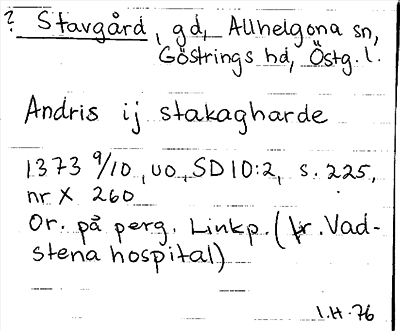 ? Stavgård, gd, Allhelgona sn,
Göstrings hd, Östg. l.
Andris ij stakagharde
1373 9/10, uo, SD 10:2, s. 225,
nr X 260
Or. på perg. Linkp. (fr. Vad-
stena hospital)
I.H-76